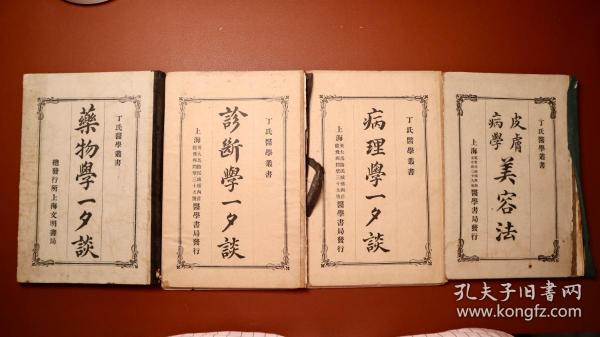 丁氏醫學叢書
藥物學一夕談
總發行所上海文明書局
丁氏醫學叢書
診斷學一夕談
上海
醫學書局發行
丁氏醫學叢書
病理學一夕談
上海
醫學書局發行
丁氏醫學叢書
皮膚病學
美容法
上海
醫學書局發行
孔夫子旧书网
www.kongfz.com